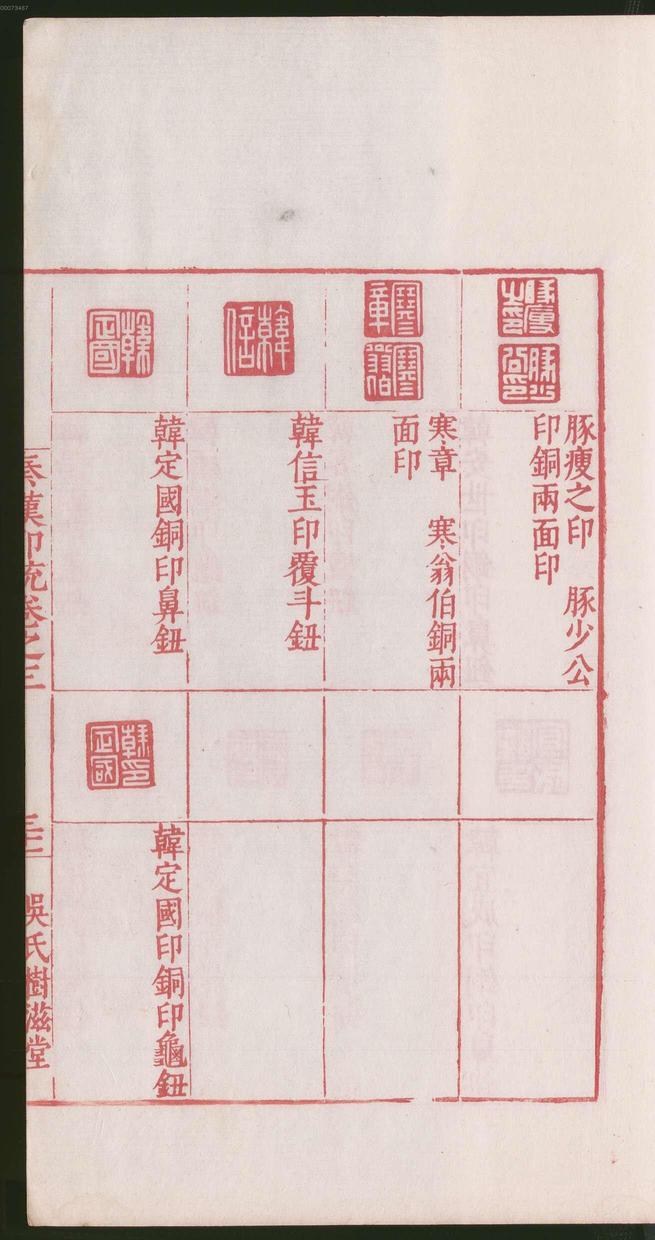 00073467
豚瘦之印　豚少公
印銅兩面印
寒章　寒翁伯銅兩
面印
韓信玉印覆斗鈕
韓定國銅印鼻鈕
韓定國印銅印龜鈕
秦漢印統卷之三
吳氏樹滋堂